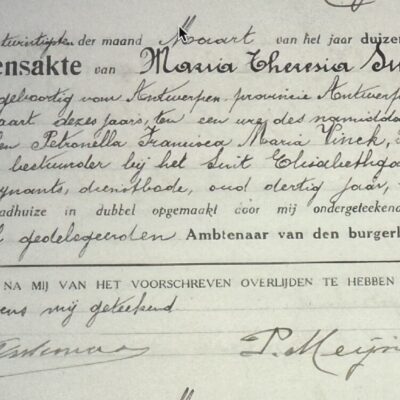 twintigsten der maand Maart van het jaar duizen
ensakte van Maria Theresia Su
geboortig van Antwerpen, provincie Antwerpe
aart dezes jaars, ten een ure des namidda
en Petronella Francisca Maria Vinck,
bestuurder bij het Sint Elisabethga
ynants, dienstbode, oud dertig jaar,
adhuize in dubbel opgemaakt door mij ondergeteekend
gedelegeerden Ambtenaar van den burgerl
NA MIJ VAN HET VOORSCHREVEN OVERLIJDEN TE HEBBEN
ens mij geteekend
P. Meijn